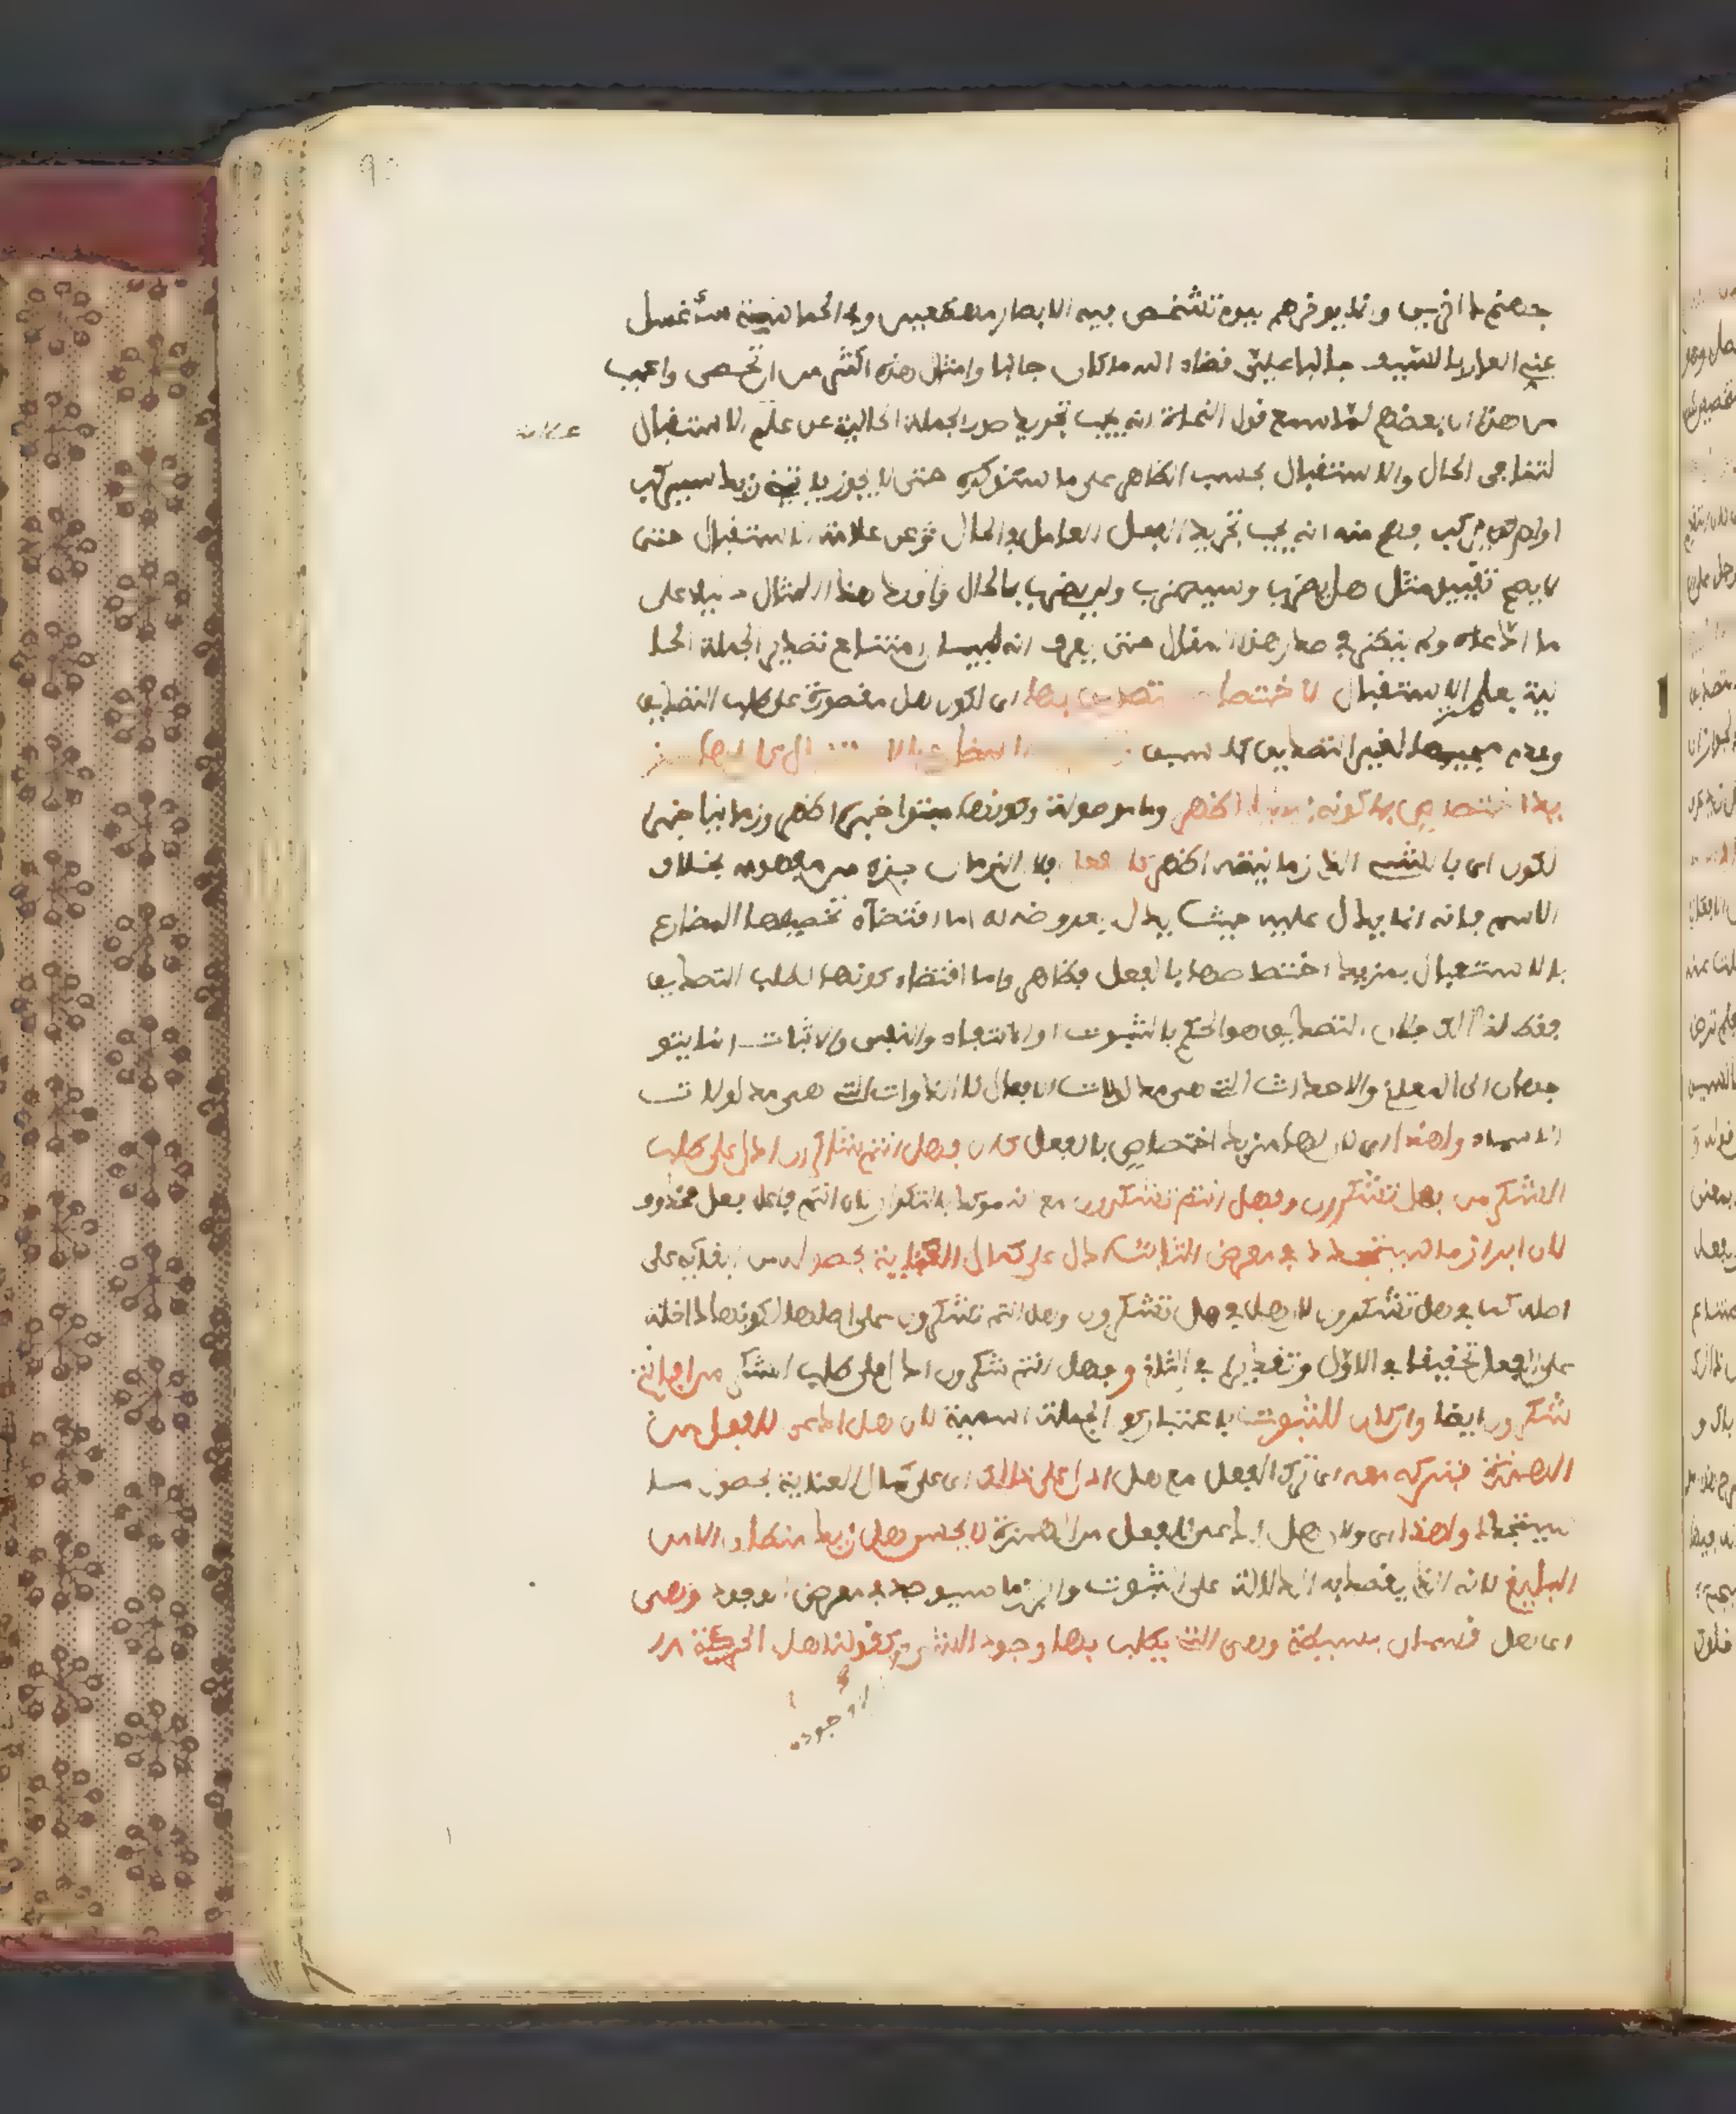 جهنم داخرين وانما يؤخرهم ليوم تشخص فيه الابصار مهطعين وفي الحماسة سأغسل
عني العار بالسيف جالبا علي قضاء الله ما كان جالبا وامثال هذه اكثر من ان تحصى واعجب
من هذا ان بعضهم لما سمع قول النحاة انه يجب تجريد صدر الجملة الحالية عن علم الاستقبال
علامة
لتنافي الحال والاستقبال بحسب الظاهر على ما سنذكره حتى لا يجوز يأتيني زيد سيركب
او لن يركب فهم منه انه يجب تجريد الفعل العامل في الحال عن علامة الاستقبال حتى
لا يصح تقييد مثل هل يضرب وسيضرب ولن يضرب بالحال واورد هذا المقال دليلا على
ما ادعاه ولم ينظر في صدر هذا المقال حتى يعرف انه لبيان امتناع تصدير الجملة الحا
لية بعلم الاستقبال لاختصاص التصديق بها اى لكون هل مقصورة على طلب التصديق
وعدم مجيئها لغير التصديق كما سبق
بها اختصاص بما كونه زمانيا اظهر وما موصولة وكونها مبتدا خبره اظهر وزمانيا خبر
لكون اى بالشيء الذي زمانيته اظهر كالفعل فان الزمان جزء من مفهومه بخلاف
الاسم فانه انما يدل عليه حيث يدل بعروضه له اما اقتضاء تخصيصها المضارع
بالاستقبال بمزيد اختصاصها بالفعل فظاهر واما اقتضاء كونها لطلب التصديق
فقط لذلك فلان التصديق هو الحكم بالثبوت او الانتفاء والنفى والاثبات انما يتو
جهان الى المعاني والاحداث التي هي مدلولات الافعال لا الذوات التي هي مدلولات
الاسماء ولهذا اى لان لها مزيد اختصاص بالفعل كان فهل انتم شاكرون ادل على طلب
الشكر من فهل تشكرون وفهل انتم تشكرون مع انه مؤكد بالتكرار لان انتم فاعل فعل محذوف
لان ابراز ما سيتجدد في معرض الثابت ادل على كمال العناية بحصوله من ابقائه على
اصله كما في هل تشكرون لان هل في هل تشكرون وهل انتم تشكرون على اصلها لكونها داخلة
على الفعل تحقيقا في الاول وتقديرا في الثاني وفهل انتم شاكرون ادل على طلب الشكر من افانتم
شاكرون ايضا وان كان للثبوت باعتبار كون الجملة اسمية لان هل ادعى للفعل من
الهمزة فتركه معه اى ترك الفعل مع هل ادل على ذلك اى على كمال العناية بحصول ما
سيتجدد ولهذا اى ولان هل ادعى للفعل من الهمزة لا يحسن هل زيد منطلق الا من
البليغ لانه الذي يقصد به الدلالة على الثبوت وابراز ما سيوجد في معرض الموجود وهى
اى هل قسمان بسيطة وهى التي يطلب بها وجود الشيء كقولنا هل الحركة
موجودة